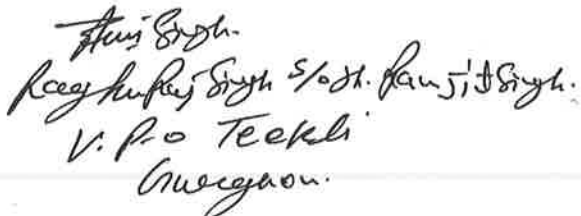 Singh.
Raghuraj Singh S/o Sh. Ranjit Singh.
V. P.o Teekli
Gurgaon.